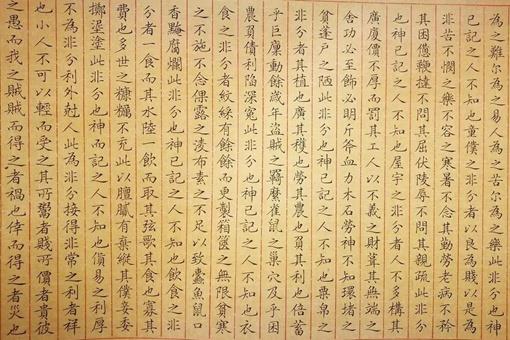 為之難尔為之易人為之苦尔為之樂此非分也神
已記之人不知也童僕之非分者以良為賤以是為
非苦不憫之樂不容之寒暑不念其勤勞老病不矜
其困憊鞭撻不問其屈伏陵辱不問其親疏此非分
也神已記之人不知也屋宇之非分者人不多構其
廣廈價不厚而罰其工人以不義之財葺其無端之
舍功必至飾必明斤斧血力木石勞神不知環堵之
貧蓬戶之陋此非分也神已記之人不知也粟帛之
非分者其植也廣其穫也勞其農也負其利也倍蓄
乎巨廩動餘歲年盜賊之羇縻雀鼠之巢穴及乎困
農負債利陷深寃此非分也神已記之人不知也衣
食之非分者紋綵有餘餘而更製箱篋之無限貧寒
之不施不念倮露之凌布素之不足以致蠹魚鼠口
香黦腐爛此非分也神已記之人不知也飲食之非
分者一食而其水陸一飲而取其弦歌其食也寡其
費也多世之糠糲不充此以膻膩有棄縱其僕妾委
擲埿塗此非分也神而記之人不知也價易之利厚
不為非分利外尅人此為非分接得非常之利者祥
也小人不可以輕而受之其所鬻者賤所價者貴彼
之愚而我之賊賊而得之者禍也倖而得之者災也